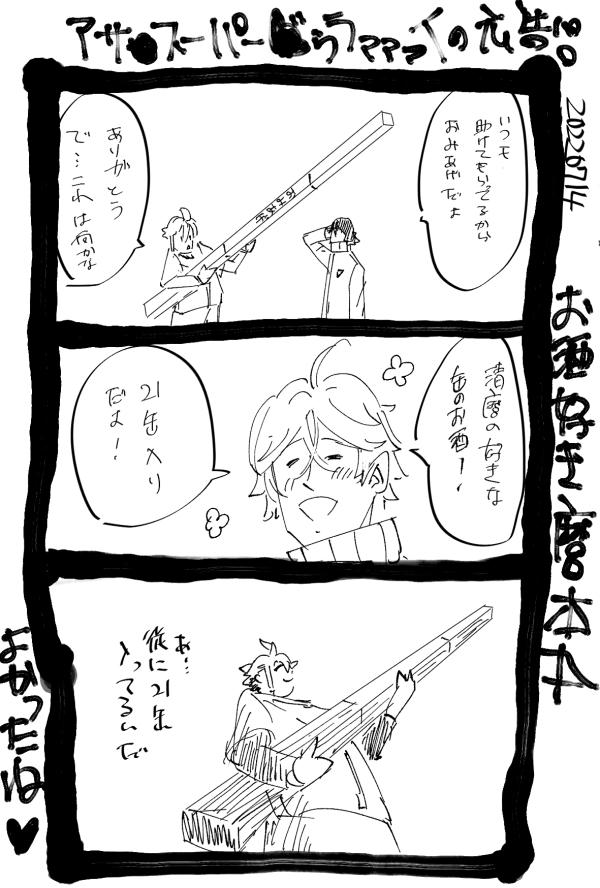 アサ●スーパーどらラママァイの広告
20220714
お酒好き麿本4
いつも
助けてもらってるから
おみあげだよ
ありがとう
で…これは何かな
おみあげ
清麿の好きな
缶のお酒ー!
21缶入り
だよ!
あ…
縦に21缶
入ってるんだ
よかったね♥